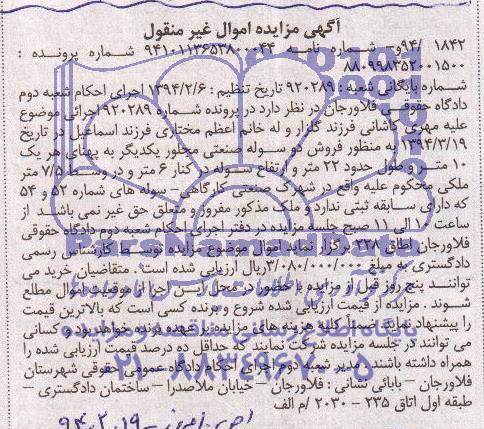 آگهی مزایده اموال غیر منقول
۱۸۴۲ /۹۴و شماره نامه ۹۴۱۰۱۱۳۶۵۳۸۰۰۰۴۴ شماره پرونده :
۸۸۰۹۹۸۳۵۲۰۰۱۵۰۰
شماره بایگانی شعبه : ۹۲۰۲۸۹ تاریخ تنظیم : ۱۳۹۴/۲/۶ اجرای احکام شعبه دوم
دادگاه حقوقی فلاورجان در نظر دارد در پرونده شماره ۹۲۰۲۸۹ اجرائی موضوع
علیه مهری کاشانی فرزند گلزار و له خانم اعظم مختاری فرزند اسماعیل در تاریخ
۱۳۹۴/۳/۱۹ به منظور فروش دو سوله صنعتی مجاور یکدیگر به پهنای هر یک
۱۰ متر و طول حدود ۲۲ متر و ارتفاع سوله در کنار ۶ متر و در وسط ۷/۵ متر
ملکی محکوم علیه واقع در شهرک صنعتی کارگاهی – سوله های شماره ۵۲ و ۵۴
که دارای سابقه ثبتی ندارد و ملک مذکور مفروز و متعلق حق غیر نمی باشد از
ساعت ۱۰ الی ۱۱ صبح جلسه مزایده در دفتر اجرای احکام شعبه دوم دادگاه حقوقی
فلاورجان اطاق ۲۲۸ برگزار نماید اموال موضوع مزایده توسط کارشناس رسمی
دادگستری به مبلغ ۳/۰۸۰/۰۰۰/۰۰۰ ریال ارزیابی شده است . متقاضیان خرید می
توانند پنج روز قبل از مزایده با حضور در محل این اجرا از موقعیت اموال مطلع
شوند . مزایده از قیمت ارزیابی شده شروع و برنده کسی است که بالاترین قیمت
را پیشنهاد نماید ضمناً کلیه هزینه های مزایده بر عهده برنده خواهد بود و کسانی
می توانند در جلسه مزایده شرکت نمایند که حداقل ده درصد قیمت ارزیابی شده را
همراه داشته باشند . مدیر شعبه دوم اجرای احکام دادگاه عمومی حقوقی شهرستان
فلاورجان – بابائی نشانی : فلاورجان – خیابان ملاصدرا – ساختمان دادگستری –
طبقه اول اتاق ۲۳۵ – ۲۰۳۰ /م الف
ParsNamadData
۰۲۱-۸۸۳۴۹۶۷۰-۵
۹۴،۲،۱۹